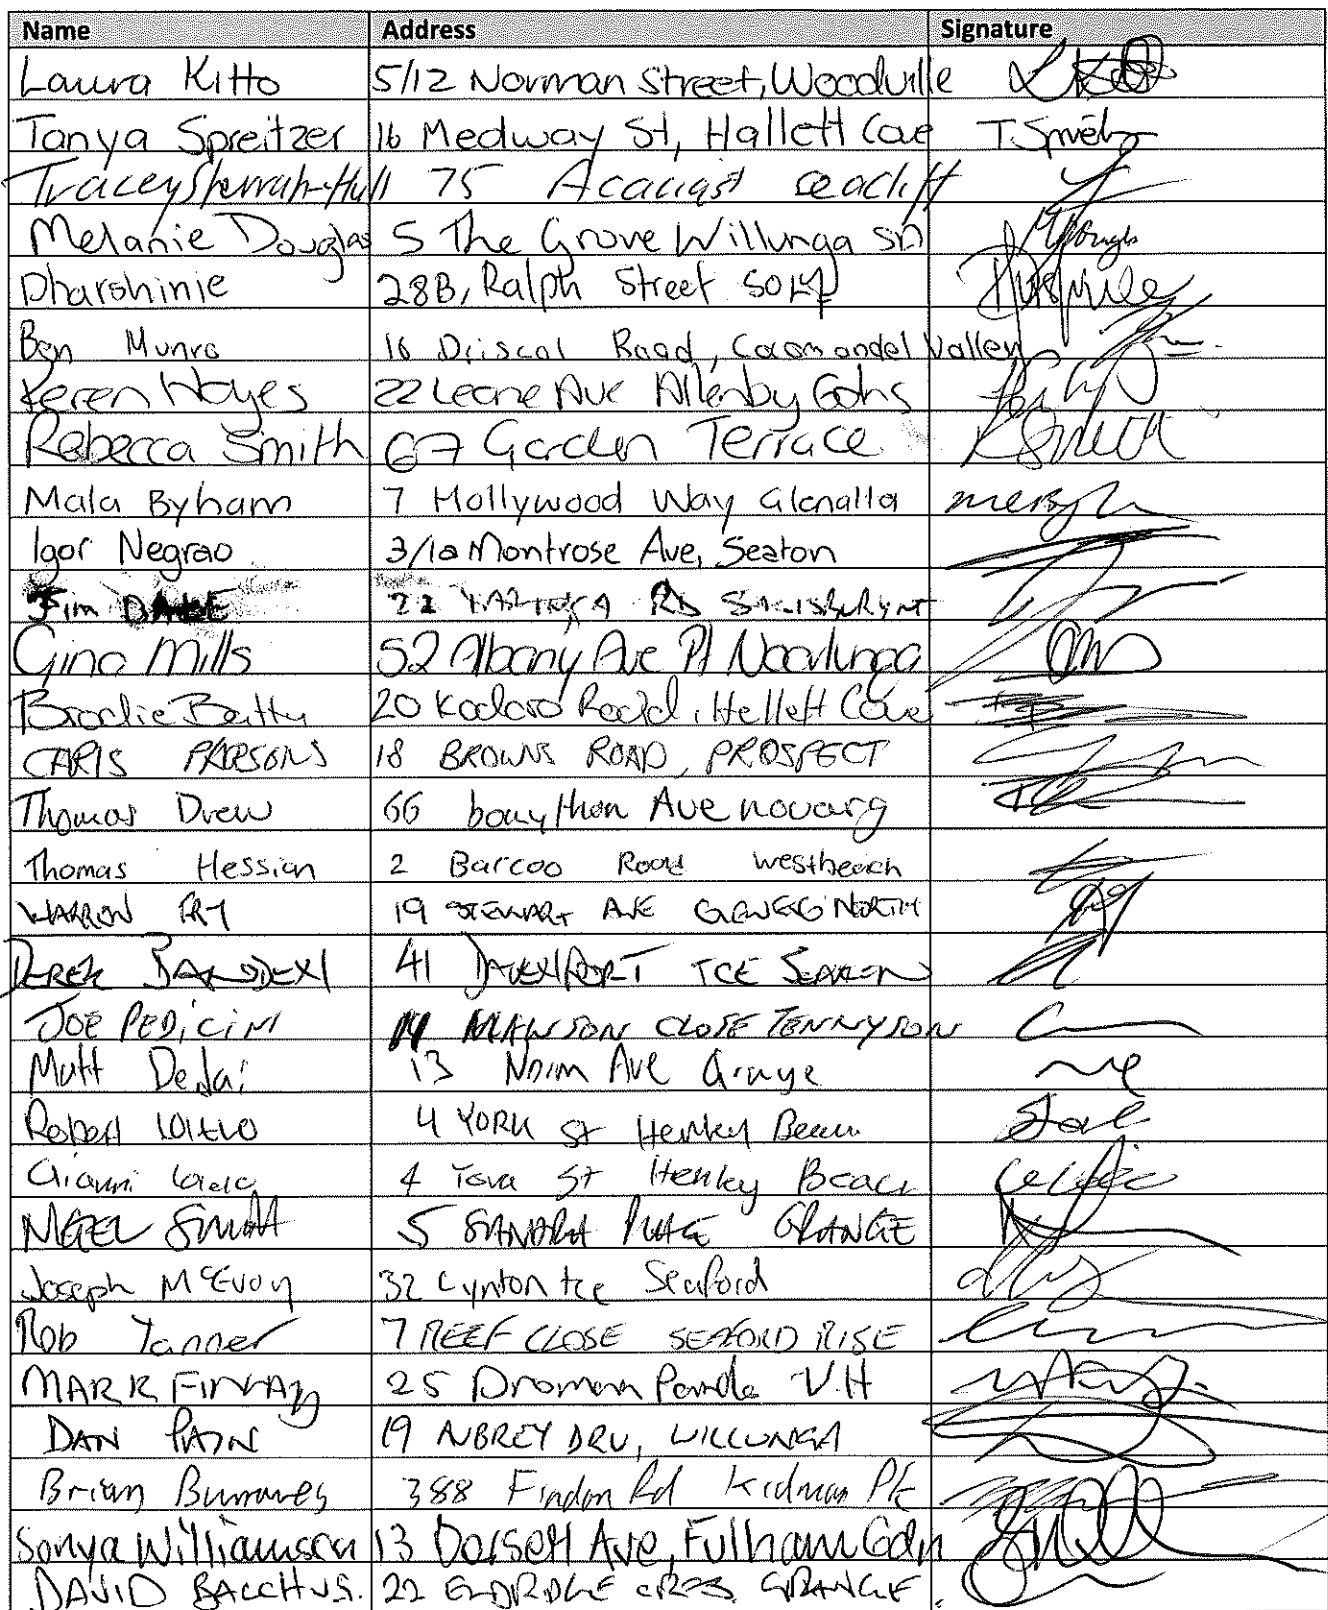 Name Address Signature
Laura Kitto 5/12 Norman Street, Woodville
Tanya Spreitzer 16 Medway St, Hallett Cove T.Spreitz
Tracey Sherrah-Hull 75 seacliff
Melanie Douglas 5 The Grove Willunga SA MDouglas
Dharshinie 28B, Ralph Street
Ben Munro 16 Driscol Road, Coromandel Valley
Keren Hayes 22 Leane Ave Allenby Gdns
Rebecca Smith 67 Garden Terrace RSmith
Mala Byham 7 Hollywood Way Glenalta
Igor Negrao 3/10 Montrose Ave, Seaton
Jim DALE 22 RD
Gina Mills 52 Albany Ave Pt Noarlunga
Brodie Beatty 20 Road, Hallett Cove
CARIS PARSONS 18 BROWNS ROAD, PROSPECT
Thomas Drew 66 bonython Ave novarg
Thomas Hessian 2 Barcoo Road westbeach
WARREN FRY 19 STEWART AVE GLENELG NORTH
DEREK 41 DAVENPORT TCE SEATON
JOE PEDICINI 14 MAWSON CLOSE TENNYSON
Matt Desai 13 Norm Ave Grange
Robert 4 YORK St Henley Beach
Gianni 4 St Henley Beach
NIGEL SMITH 5 SANDRA PLACE GRANGE
Joseph McEvoy 32 Lynton tce Seaford
Rob Tanner 7 REEF CLOSE SEAFORD RISE
MARK FINLAY 25 Dromana Parade V.H
DAN PAIN 19 AUBREY DRV, WILLUNGA
Brian 388 Findon Rd Kidman Pk
Sonya Williamson 13 Dorset Ave, Fulham Gdn
DAVID BACCHUS. 22 ELDRIDGE CRES. GRANGE.